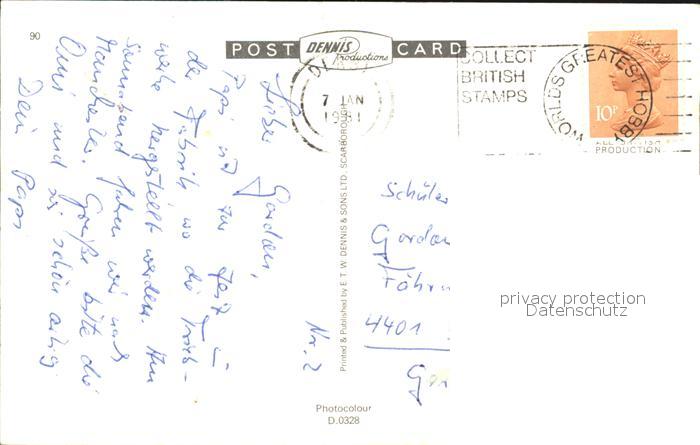 90
POST CARD
DENNIS
Productions
7 JAN
1981
COLLECT
BRITISH
STAMPS
WORLDS GREATEST HOBBY
10P
ALL BRITISH
PRODUCTION
Nr. 2
Lieber Gordon,
Papi ist zur Zeit in
der Fabrik wo die Trieb-
werke hergestellt werden. Am
Sonnabend fahren wir nach
Manchester. Grüße bitte die
Omi und sei schön artig
Dein Papi
Printed & Published by E.T.W. DENNIS & SONS LTD., SCARBOROUGH
Schüler
Gordon
4401
privacy protection
Datenschutz
Photocolour
D.0328